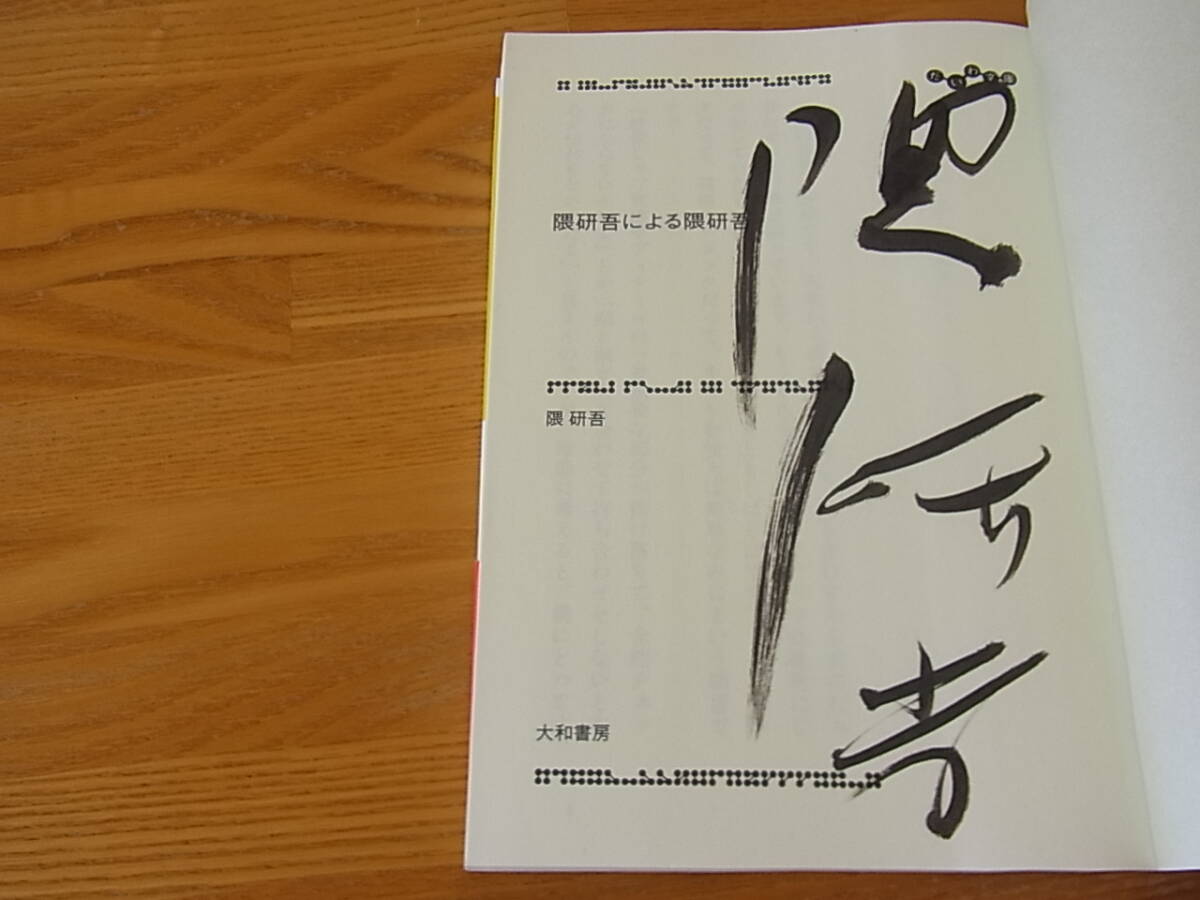 だいわ文庫
隈研吾による隈研吾
隈 研吾
大和書房
隈研吾